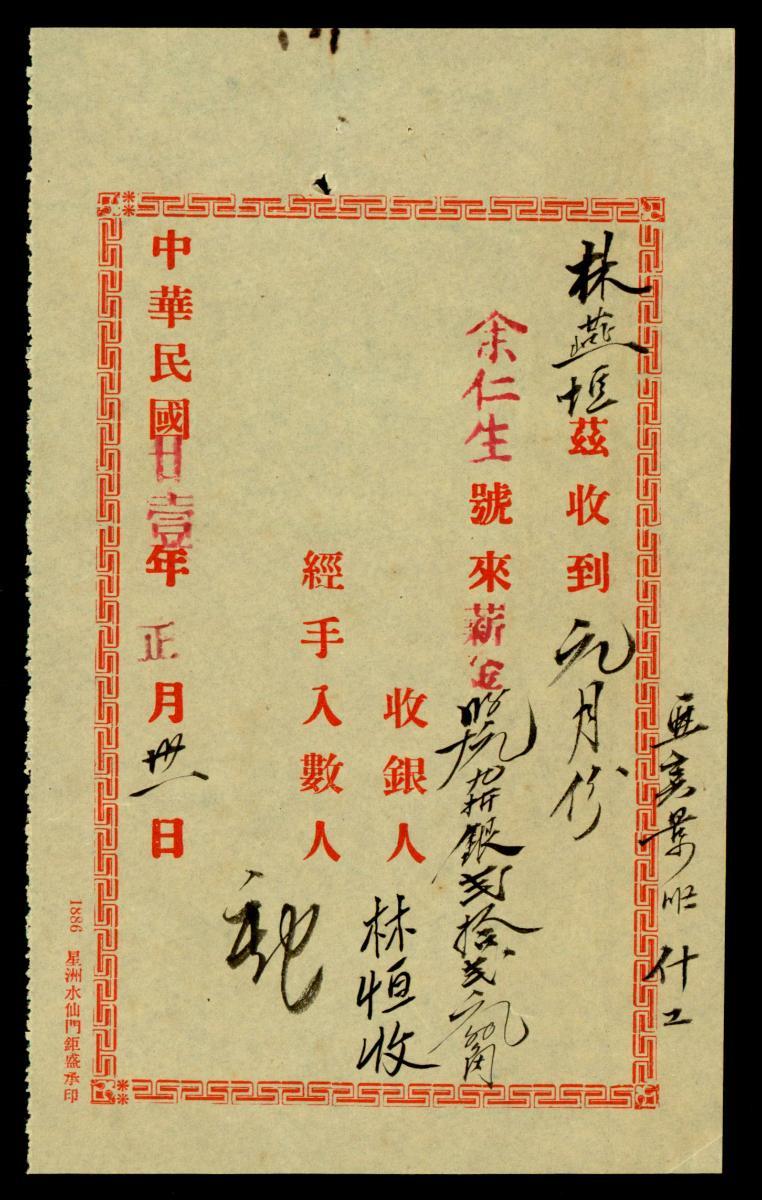 林燕恒茲收到元月份
余仁生號來薪金
九折銀弍拾弍元
收銀人林恒收
經手入數人
中華民國廿壹年正月卅一日
什工
1886 星洲水仙門鉅盛承印